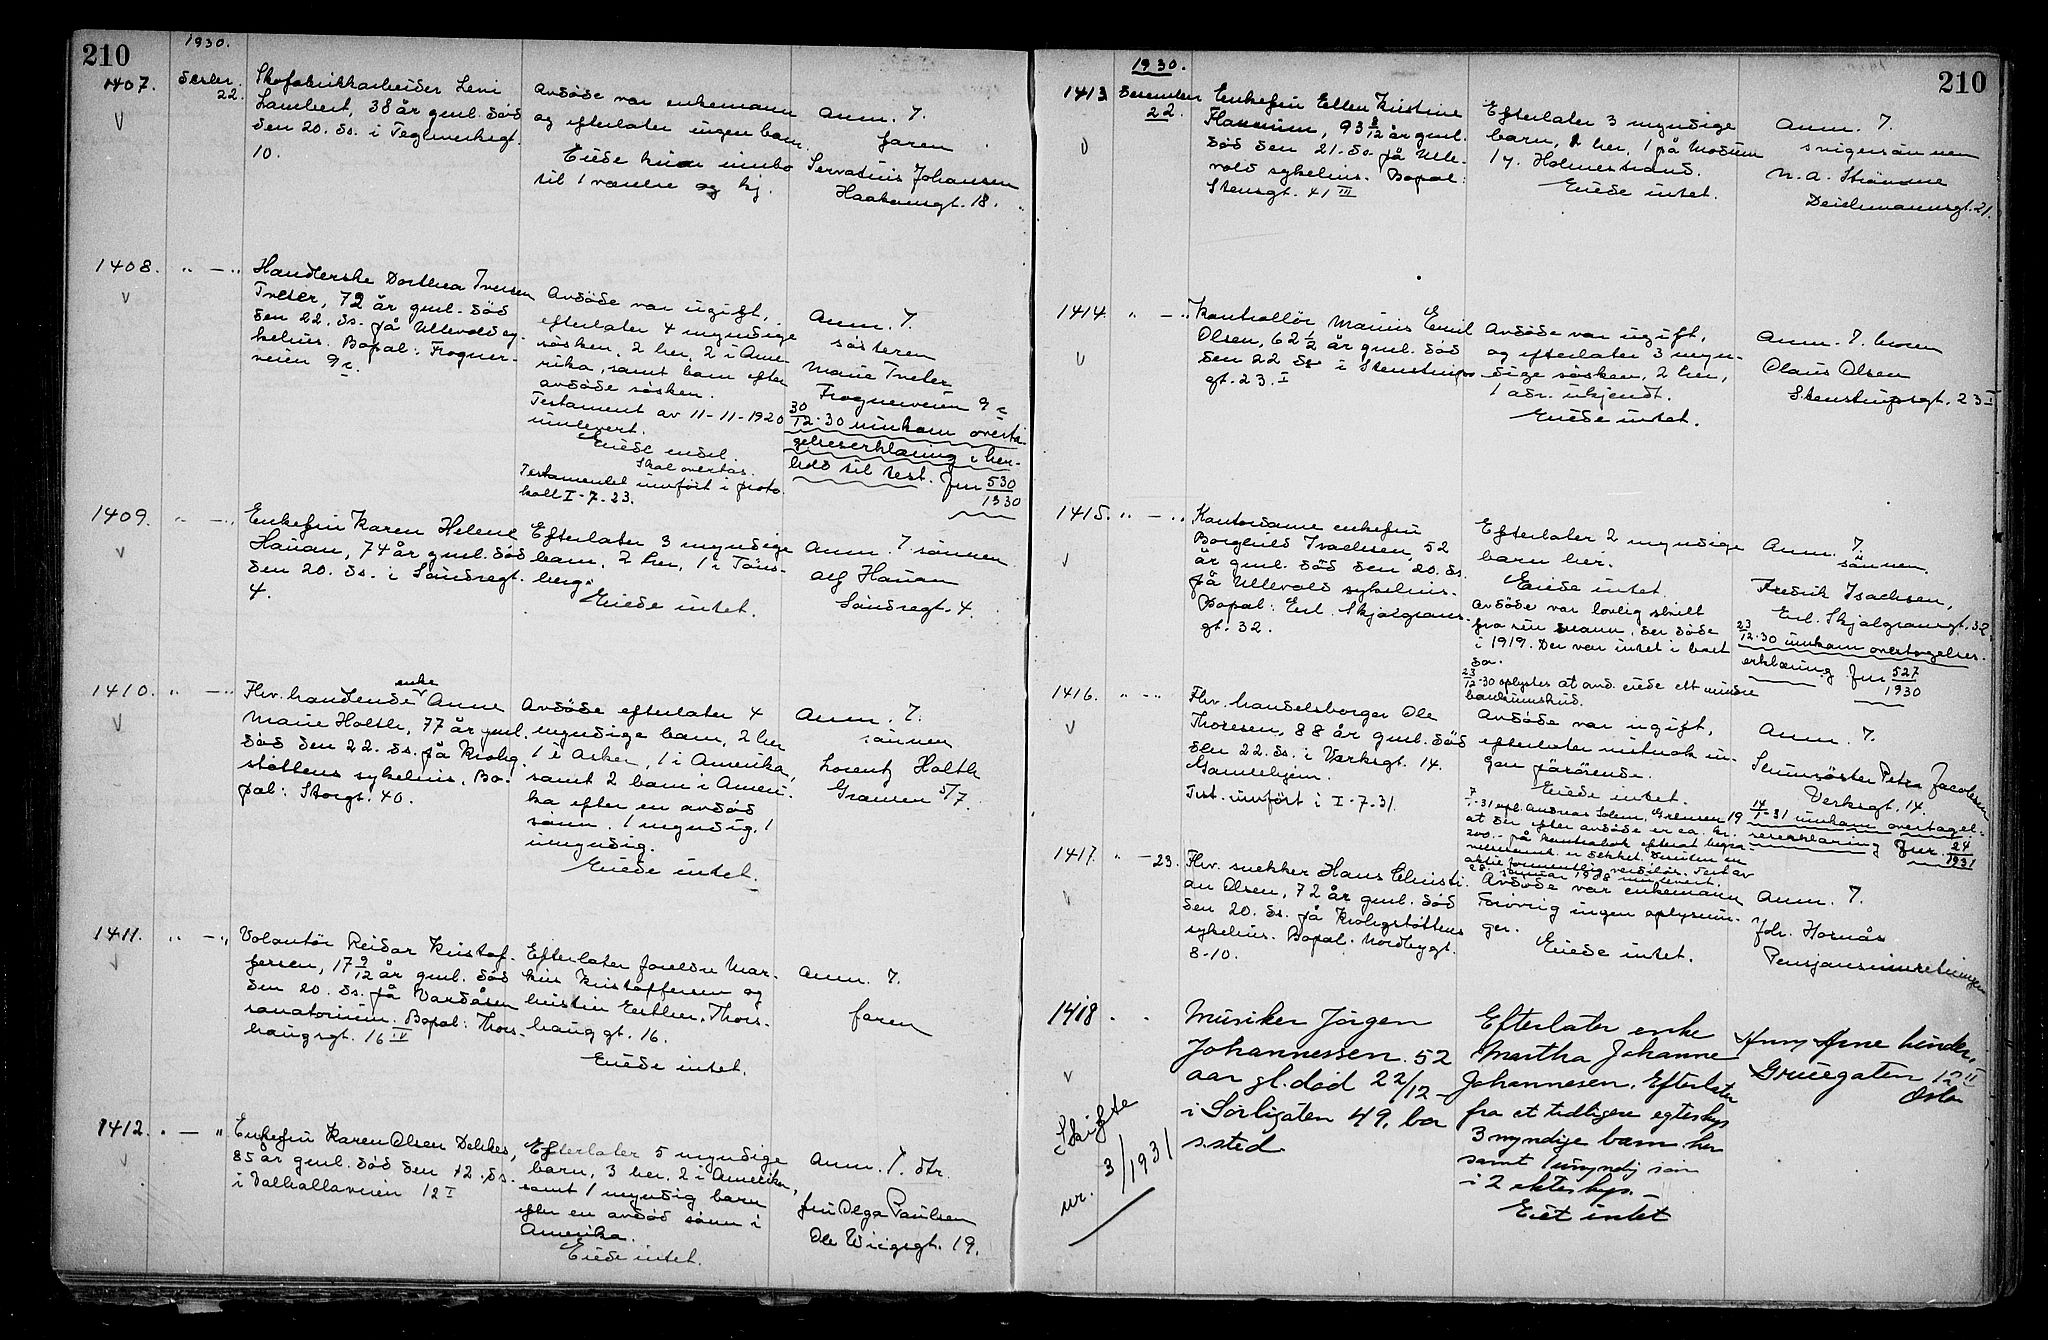 210
1930.
1407.
Desbr. 22.
Skofabrikkarbeider Levi
Lambert, 38 år gml. död
den 20. ds. i Teglverksgt.
10.
Avdöde var enkemann
og efterlater ingen barn.
Eiede kun innbo
til 1 værelse og kj.
Anm. 7.
faren
Servatius Johansen
Haakonsgt. 18.
1408. " — "
Handlerske Dorthea Iversen
Tveter, 72 år gml. död
den 22. ds. på Ullevold sy-
kehus. Bopal: Frogner-
veien 9c
Avdöde var ugift,
efterlater 4 myndige
sösken, 2 her, 2 i Ame-
rika, samt barn efter
avdöde sösken.
Testament av 11-11-1920
innlevert.
Eiede endel.
Skal overtas.
Testamentet innfört i proto-
koll I-7-23.
Anm. 7.
sösteren
Marie Tveter
Frognerveien 9c
30/12-30 innkom overta-
gelseserklæring i hen-
hold til test. Jnr 530/1930
1409. " — "
Enkefru Karen Helene
Hauan, 74 år gml. död
den 20. ds. i Sandsregt.
4.
Efterlater 3 myndige
barn, 2 her, 1 i Töns-
berg.
Eiede intet.
Anm. 7 sönnen
Alf Hauan
Sandsregt. 4.
1410. " — "
Fhv. handlende enke Anne
Marie Holth, 77 år gml.
död den 22. ds. på Krohg-
stöttens sykehus. Bo-
pal: Storgt. 40.
Avdöde efterlater 4
myndige barn, 2 her
1 i Asker, 1 i Amerika,
samt 2 barn i Ameri-
ka efter en avdöd
sönn. 1 myndig, 1
umyndig.
Eiede intet.
Anm. 7.
sönnen
Lorentz Holth
Gransen 5/7.
1411. " — "
Volontör Reidar Kristof-
fersen, 17 9/12 år gml. död
den 20. ds. på Vardåsen
sanatorium. Bopal: Thors-
haugsgt. 16 IV
Efterlater foreldre Mar-
kus Kristoffersen og
hustru Esther, Thors-
haug gt. 16.
Eiede intet.
Anm. 7.
faren
1412. " — "
Enkefru Karen Olsen Dekkes,
85 år gml. död den 12. ds.
i Valhallaveien 12 I
Efterlater 5 myndige
barn, 3 her, 2 i Amerika,
samt 1 myndig barn
efter en avdöd sönn i
Amerika.
Eiede intet.
Anm. 7. dtr.
fru Olga Paulsen
Ole Wiigsgt. 19.
1930.
210
1413
Desember 22.
Enkefru Ellen Kristine
93 8/12 år gml.
död den 21. ds. på Ulle-
vold sykehus. Bopal:
Stensgt. 41 III
Efterlater 3 myndige
barn, 1 her, 1 på Modum
1 y. Holmestrand.
Eiede intet.
Anm. 7.
svigersönnen
N. A. Strömme
Deichmannsgt. 21.
1414. " — "
Kontrollör Marius Emil
Olsen, 62 1/2 år gml. död
den 22 ds i Stenstrups-
gt. 23. I
Avdöde var ugift,
og efterlater 3 myn-
dige sösken, 2 her,
1 adr. ukjendt.
Eiede intet.
Anm. 7. broren
Olaus Olsen
Stenstrupsgt. 23 I
1415. " — "
Kontordame enkefru
Borghild Isachsen, 52
år gml. död den 20. ds.
på Ullevold sykehus.
Bopal: Erl. Skjalgsöns-
gt. 32.
Efterlater 2 myndige
barn her.
Eiede intet.
Avdöde var lovlig skilt
fra sin mann, der döde
i 1919. Der var intet i boet
da.
23/12-30 oplystes at avd. eiede ett mindre
bankinnskud.
Anm. 7.
sönnen.
Fredrik Isachsen,
Erl. Skjalgsönsgt. 32
23/12-30 innkom overtagelses-
erklæring Jnr 527/1930
1416. " — "
Fhv. handelsborger Ole
Thoresen, 88 år gml. död
den 22. ds. i Verksgt. 14.
Gamlehjem.
Test. innfört i I-7-31.
Avdöde var ugift,
efterlater nitnok in-
gen pårörende.
Eiede intet.
7/1-31 opl. Andreas Solem, Grensen 19
at der efter avdöde er ca. kr.
200.- på kontrabok efterat begra-
velsesomk. er dekket. Desuten en
aktie formentlig verdilös. Test av
28. januar 1928 innlevert.
Anm. 7.
Petra Jacobsen
Verksgt. 14.
14/1-31 innkom overtagel-
seserklæring Jnr. 24/1931
1417. " — 23.
Fhv. snekker Hans Christi-
an Olsen, 72 år gml. död
den 20. ds. på Krohgstöttens
sykehus. Bopal: Nordbygt.
8-10.
Avdöde var enkemann
Forövrig ingen oplysnin-
ger.
Eiede intet.
Anm. 7.
Joh. Hosnås
Pensjonsinnretningen
1418 " "
Musiker Jörgen
Johannessen. 52
aar gl. død 22/12 -
i Sorligaten 49. bor
s.sted
Efterlater enke
Martha Johanne
Johannesen. Efterlater
fra et tidligere egteskap
3 myndige barn her
samt 1 umyndig søn
i 2 ekteskap. —
Eiet intet
Anny Arne Linder.
Gruegaten 12 II
Oslo
Skifte
nr. 3/1931